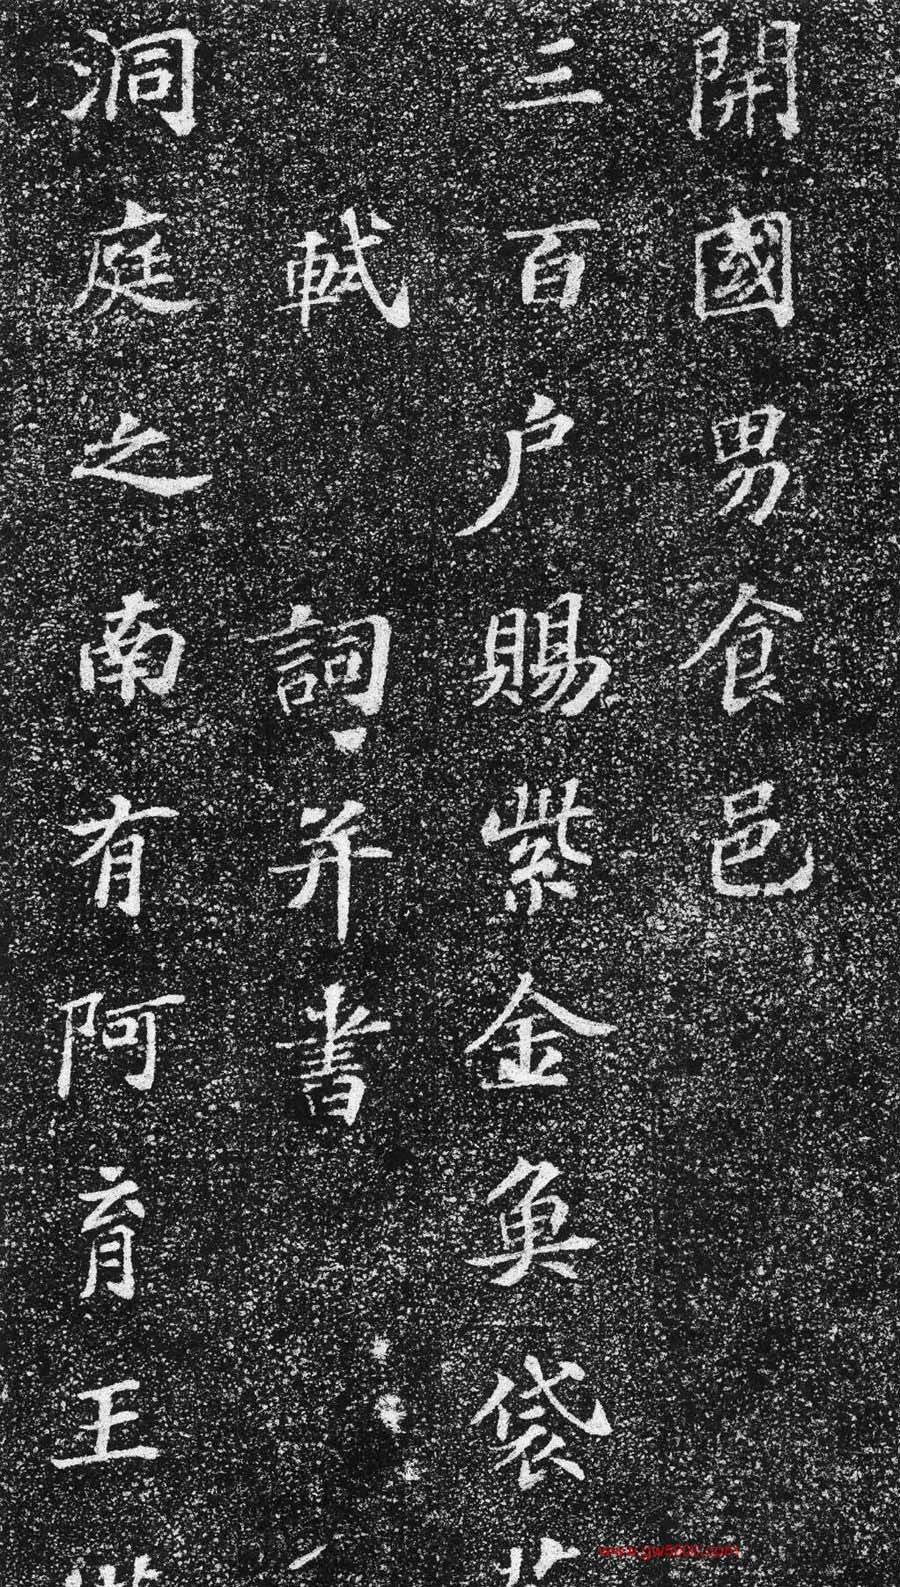 開國男食邑
三百户賜紫金魚袋
軾詞并書
洞庭之南有阿育王